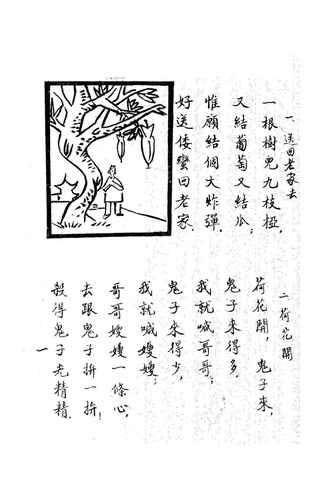 一 送回老家去
一根樹兒九枝椏，
又結葡萄又結瓜；
惟願結個大炸彈，
好送倭蠻回老家。
二 荷花開
荷花開，鬼子來，
鬼子來得多，
我就喊哥哥；
鬼子來得少，
我就喊嫂嫂；
哥哥嫂嫂一條心，
去跟鬼子拚一拚！
殺得鬼子光精精。
一